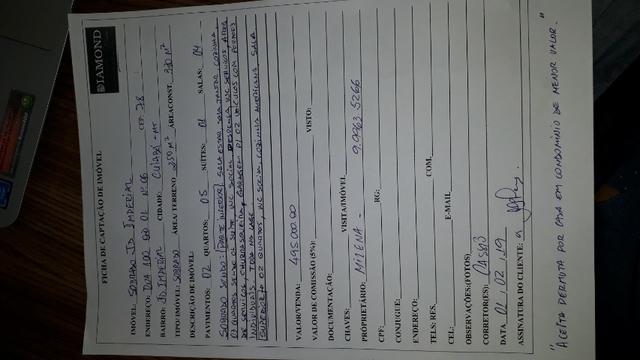 DIAMOND
FICHA DE CAPTAÇÃO DE IMÓVEL
IMÓVEL: SOBRADO JD IMPERIAL
ENDEREÇO: RUA 100 QD 01 Nº 06 CEP: 78
BAIRRO: JD IMPERIAL CIDADE: CUIABÁ-MT
TIPO IMÓVEL: SOBRADO ÁREA/TERRENO 250 M² AREACONST. 330 M²
DESCRIÇÃO DE IMÓVEL:
PAVIMENTOS: 02 QUARTOS: 05 SUÍTES: 01 SALAS: 04
SOBRADO SENDO: (PARTE INFERIOR) SALA ESTAR SALA JANTAR COZINHA
QUARTOS SENDO 01 SUÍTE WC SOCIAL DESPENSA WC SERVIÇOS ÁREA
DE SERVIÇOS GARAGEM 02 VEÍCULOS COM
(SUPERIOR) 02 QUARTOS, WC SOCIAL COZINHA AMERICANA SALA
VALOR/VENDA: 495.000.00
VALOR DE COMISSÃO (5%): VISTO:
DOCUMENTAÇÃO:
CHAVES: VISITA/IMÓVEL
PROPRIETÁRIO: MILENA - 9.9963.5266
CPF: RG:
CONJUGUE:
ENDEREÇO:
TELS: RES. COM.
CEL: E-MAIL
OBSERVAÇÕES:(FOTOS)
CORRETOR(ES):
DATA 01, 02, 19
ASSINATURA DO CLIENTE:
"ACEITA PERMUTA POR CASA EM CONDOMÍNIO DE MENOR VALOR."